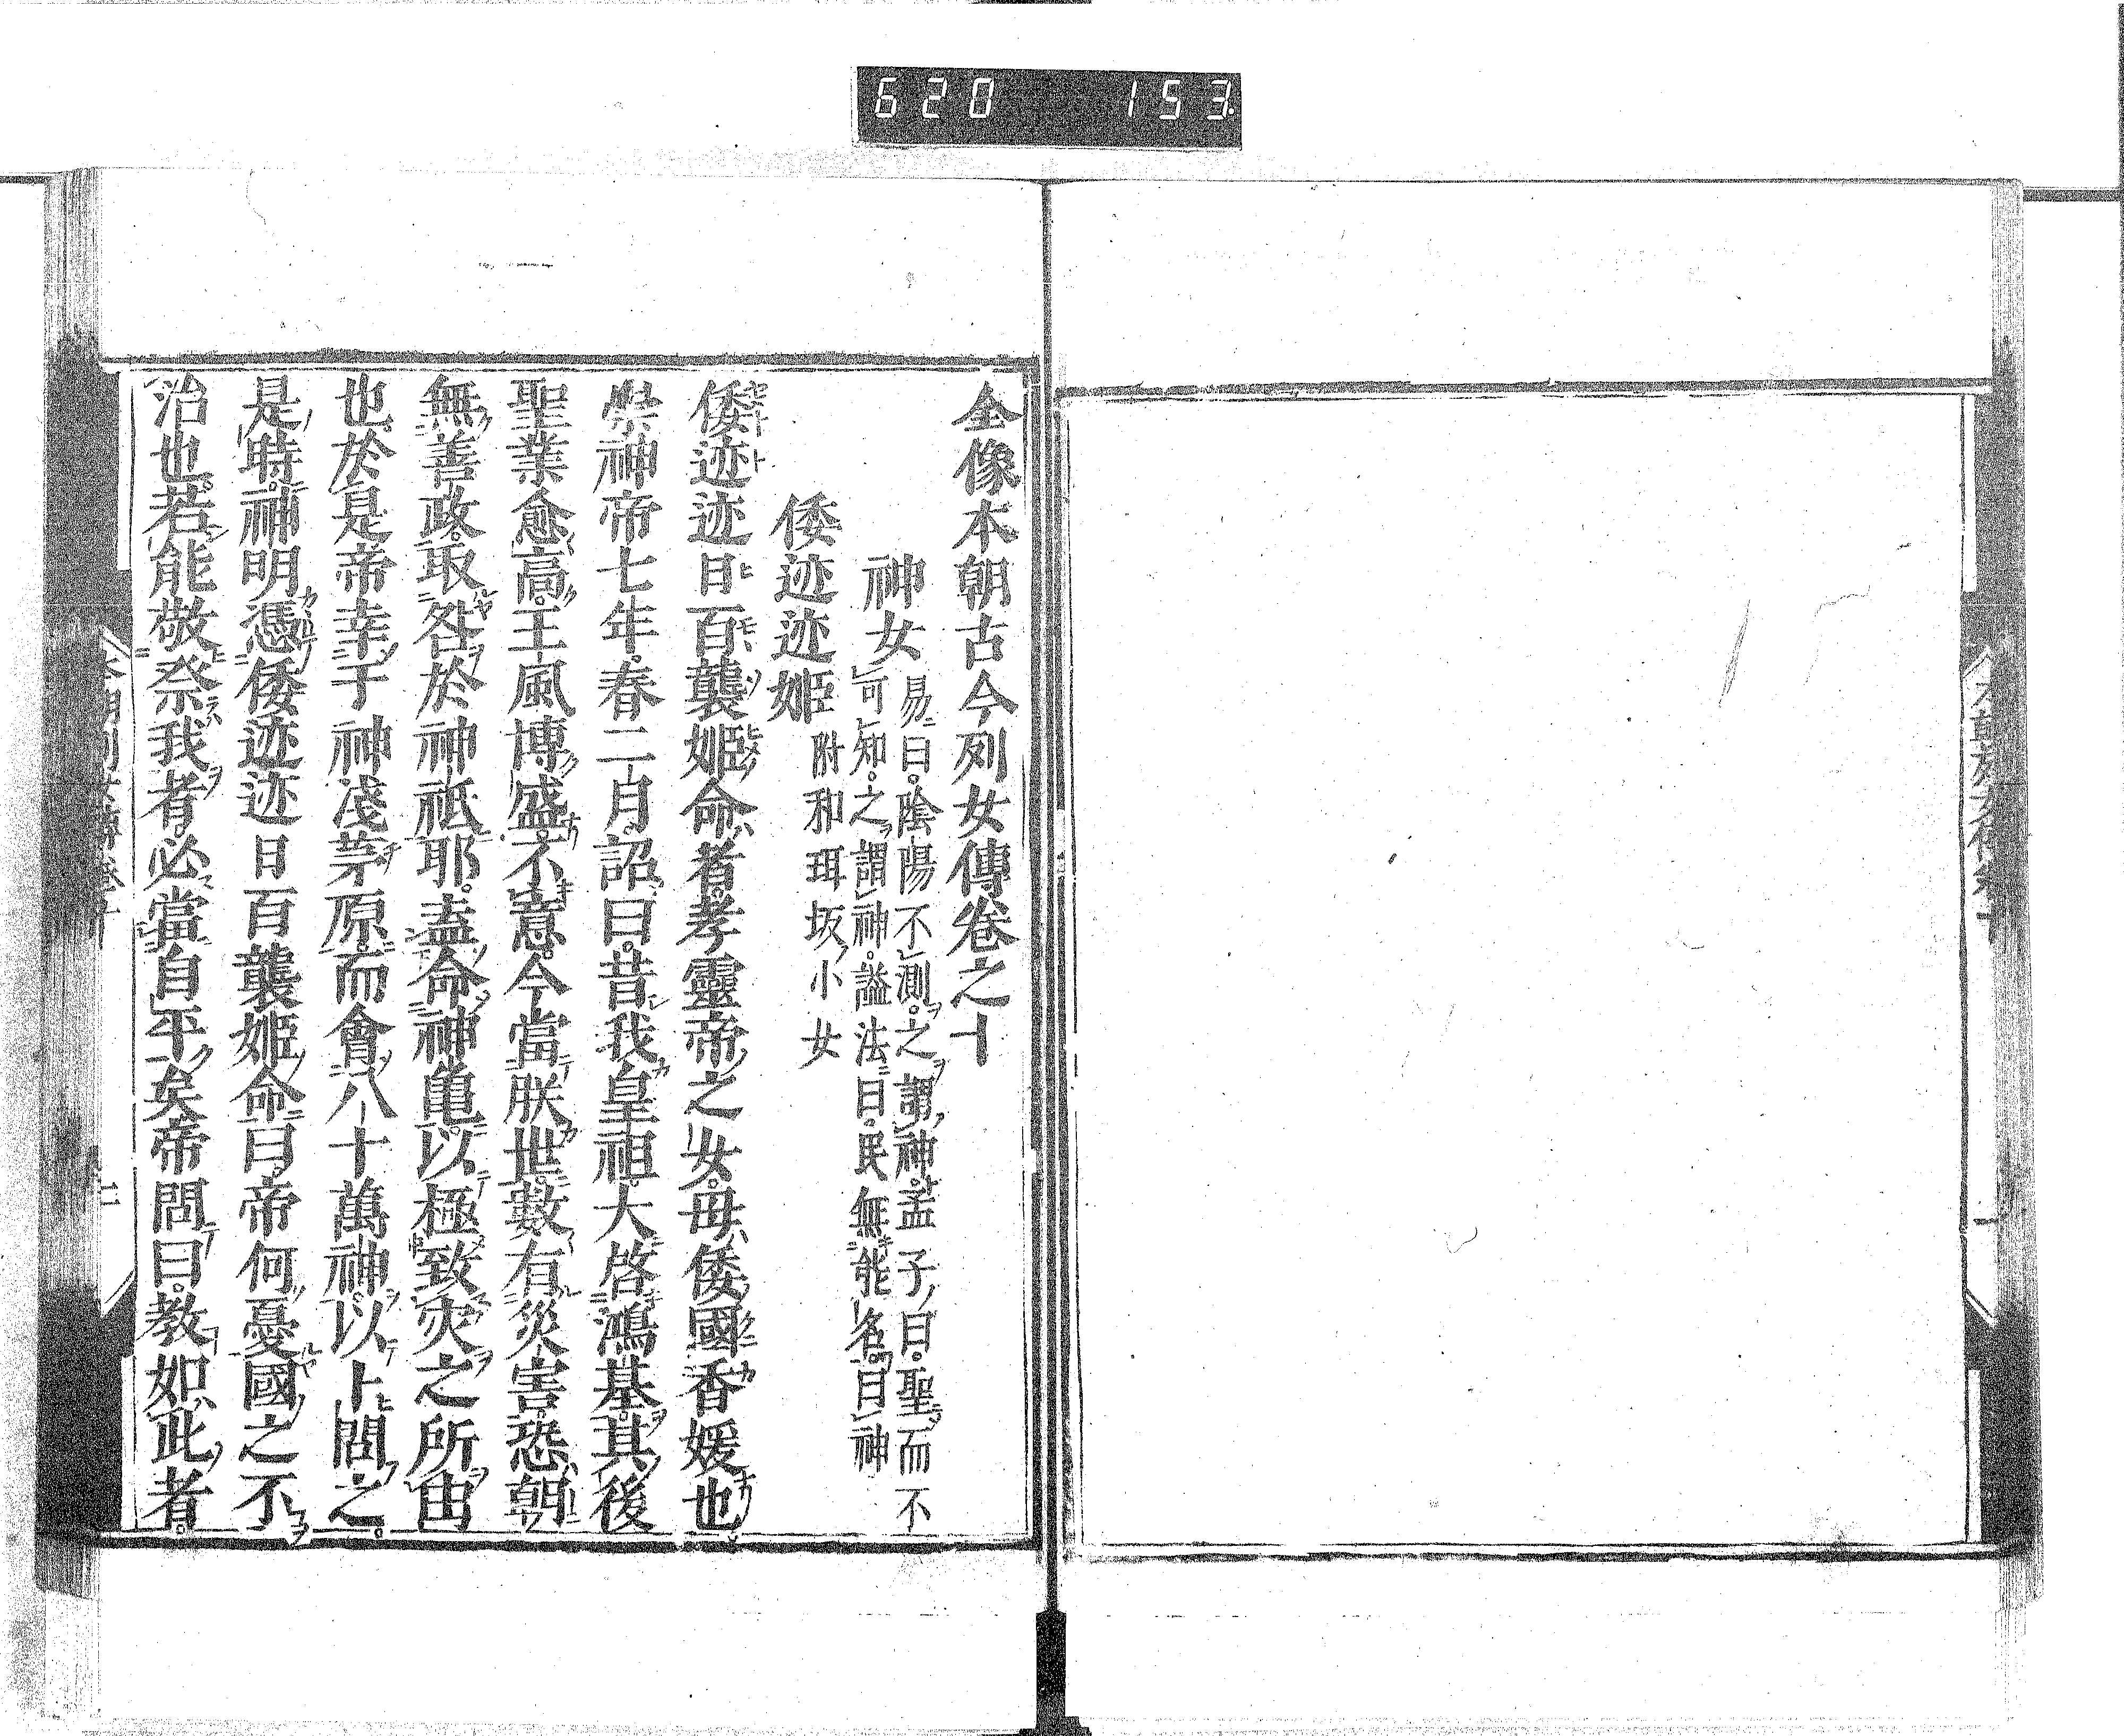 620 153
全像本朝古今列女傳卷之十
神女
易曰陰陽不測之謂神孟子曰聖而不
可知之謂神謚法曰民無能名曰神
倭迹迹姬附和珥坂小女
倭迹迹日百襲姬命者孝靈帝之女母倭國香媛也
崇神帝七年春二月詔曰昔我皇祖大啓鴻基其後
聖業愈高王風博盛不意今當朕世數有災害恐朝
無善政取咎於神祇耶盍命神亀以極致灾之所由
也於是帝幸于神淺茅原而會八十萬神以卜問之
是時神明憑倭迹迹日百襲姬命曰帝何憂國之不
治也若能敬祭我者必當自平矣帝問曰教如此者